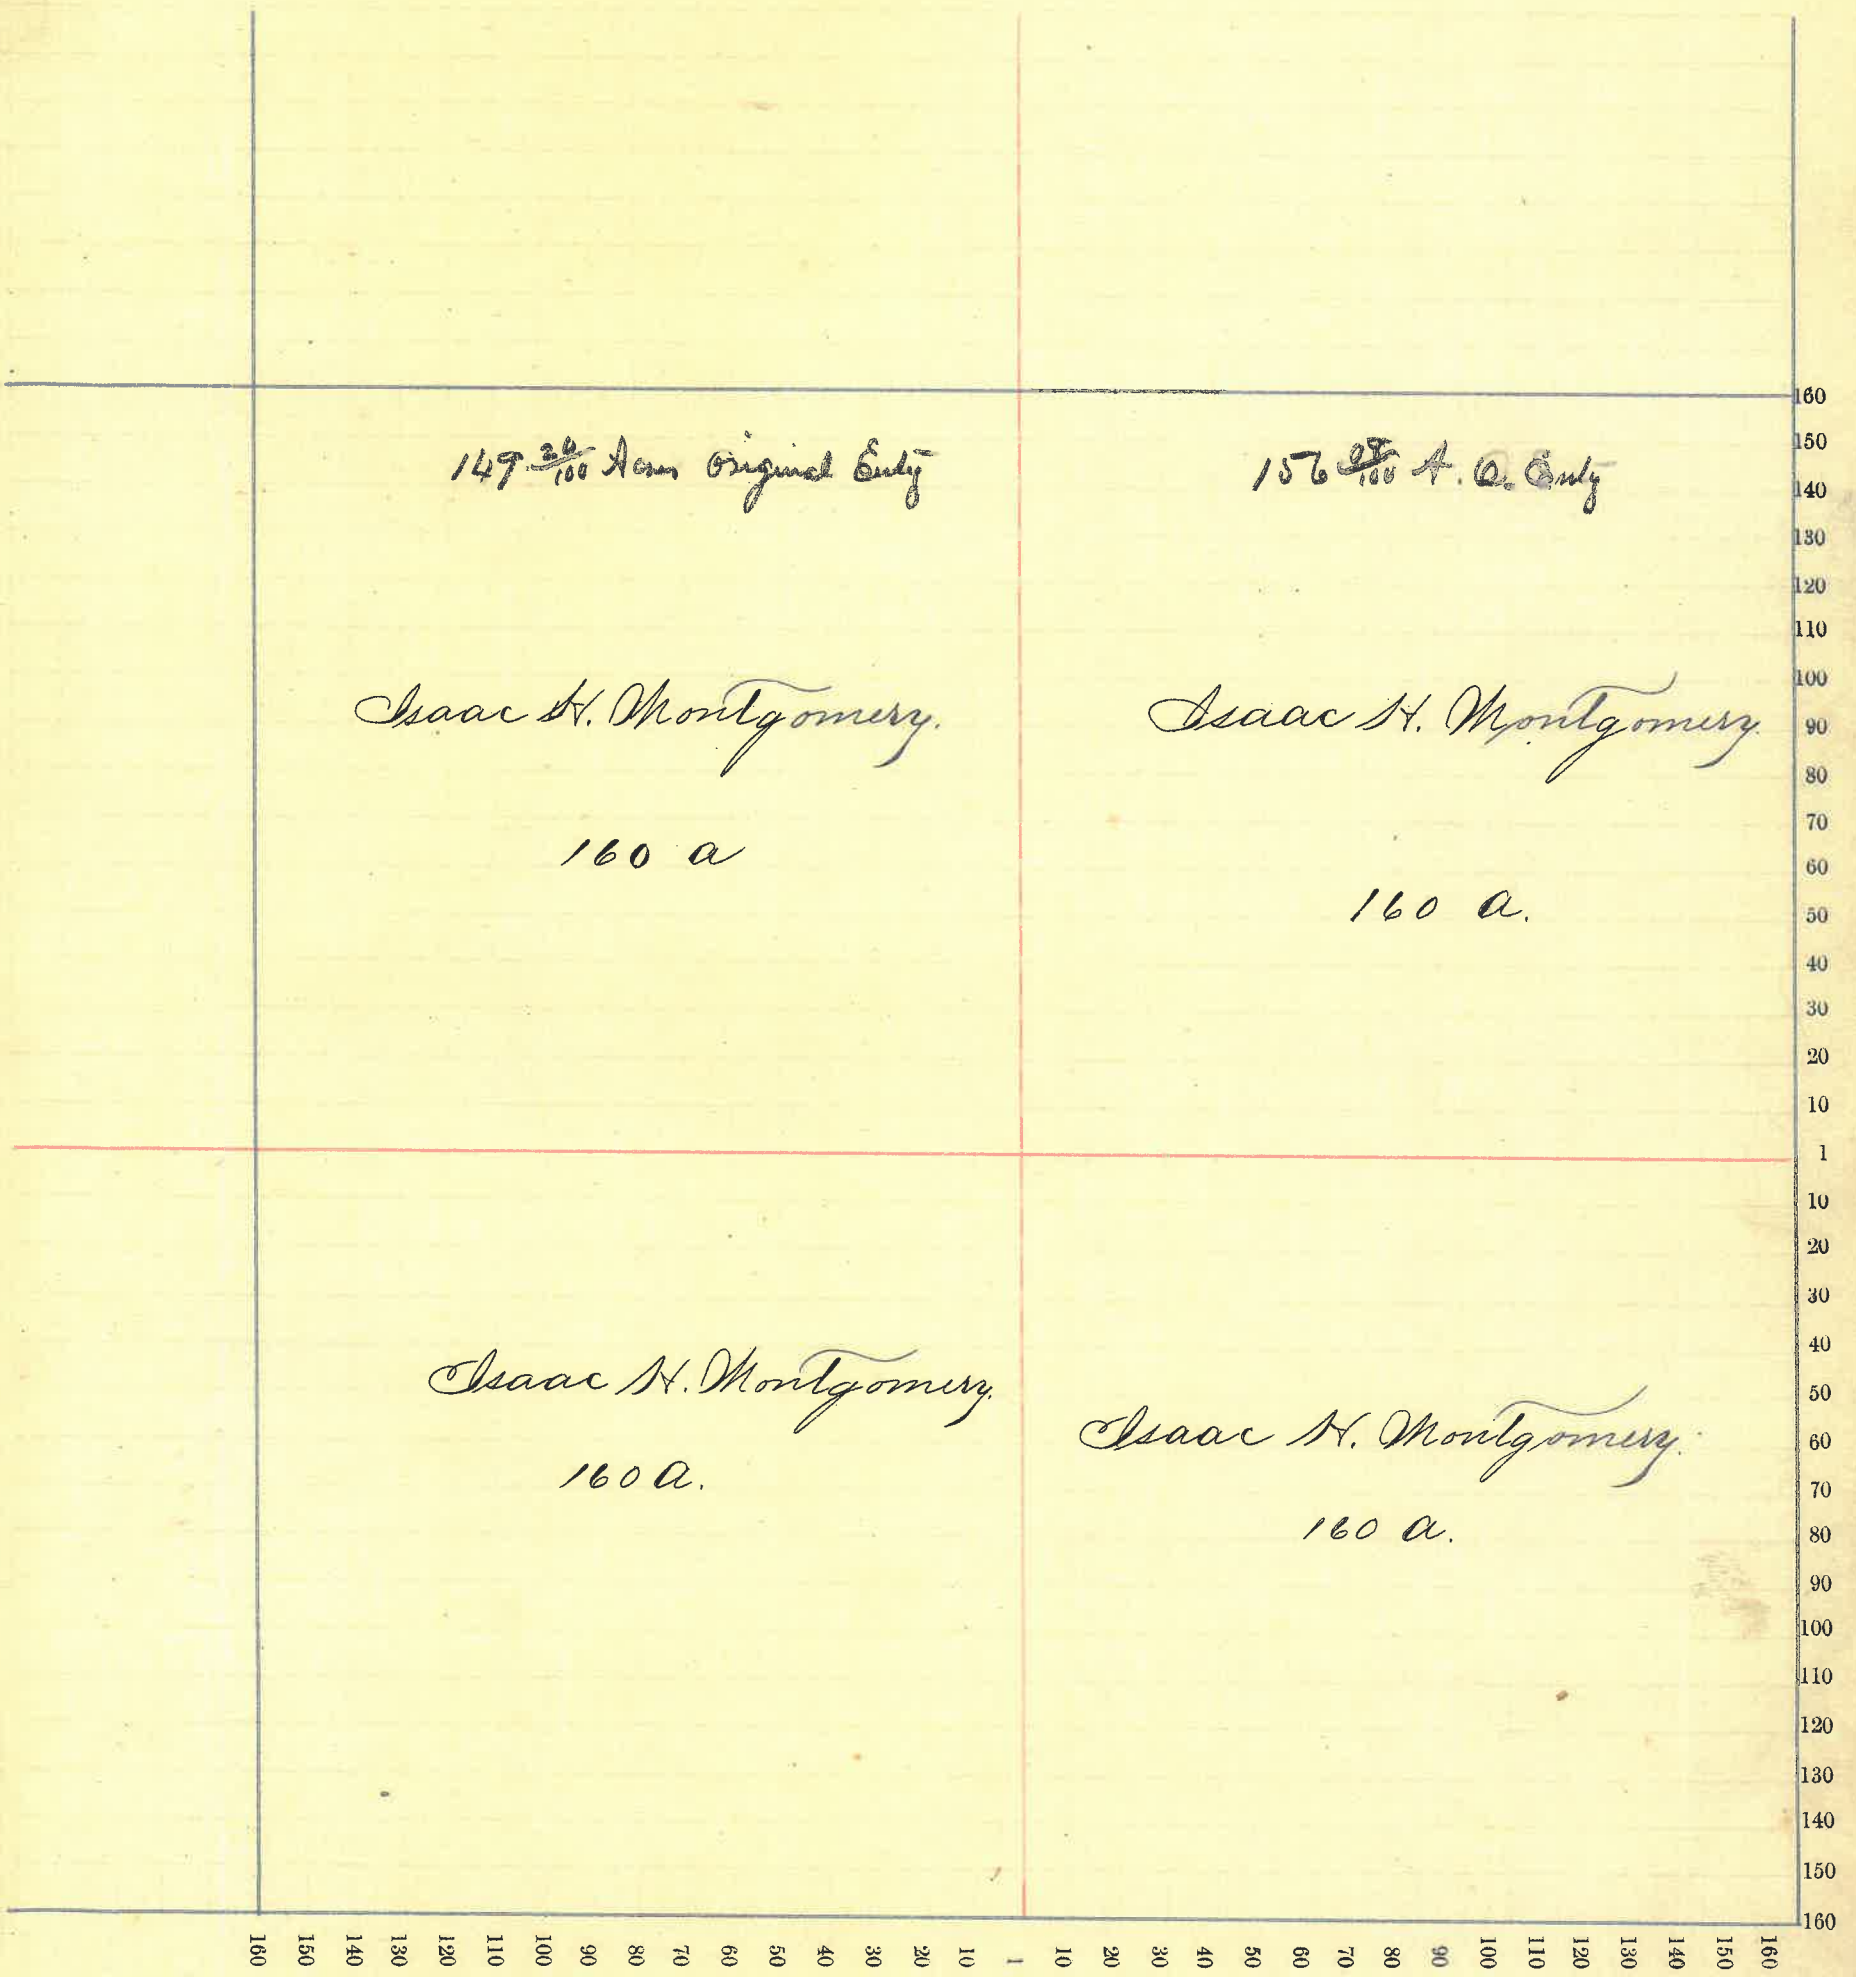 149 20/100 Acres Original Enty
156 28/100 A. O. Enty
Isaac H. Montgomery.
160 a
Isaac H. Montgomery.
160 a.
Isaac H. Montgomery.
160 a.
Isaac H. Montgomery.
160 a.
160
150
140
130
120
110
100
90
80
70
60
50
40
30
20
10
1
10
20
30
40
50
60
70
80
90
100
110
120
130
140
150
160
160 150 140 130 120 110 100 90 80 70 60 50 40 30 20 10 1 10 20 30 40 50 60 70 80 90 100 110 120 130 140 150 160